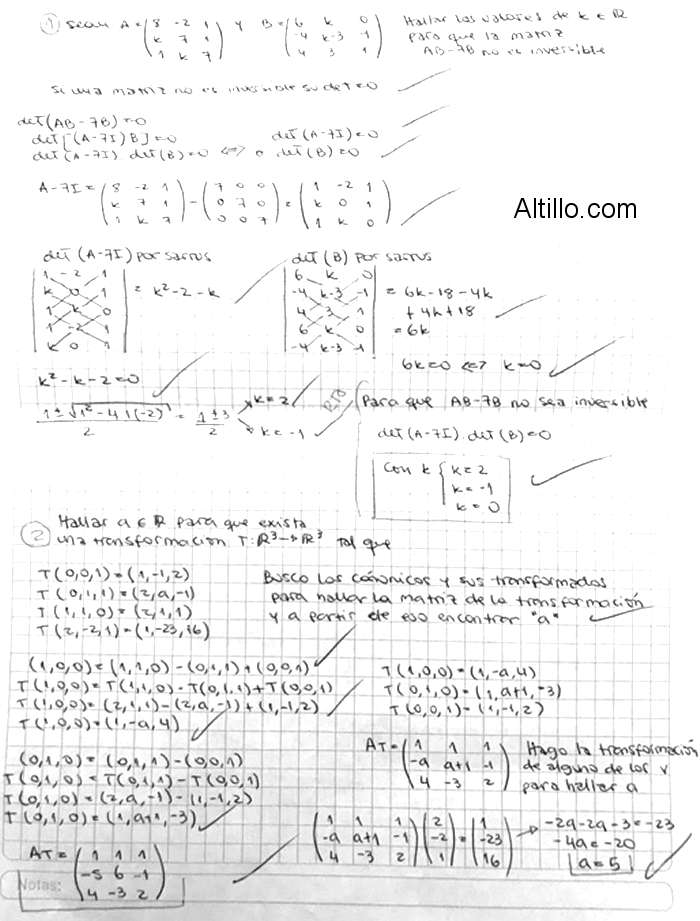 ① Sean A = (8 -2 1 / k 7 1 / 1 k 7) y B = (6 k 0 / -4 k-3 -1 / 4 3 1) Hallar los valores de k ∈ R
para que la matriz
AB-7B no es inversible
Si una matriz no es inversible su det = 0
det(AB-7B) = 0
det[(A-7I)B] = 0 det(A-7I) = 0
det(A-7I) det(B) = 0 <=> o det(B) = 0
A-7I = (8 -2 1 / k 7 1 / 1 k 7) - (7 0 0 / 0 7 0 / 0 0 7) = (1 -2 1 / k 0 1 / 1 k 0)
Altillo.com
det (A-7I) por sarrus
1 -2 1
k 0 1
1 k 0
1 -2 1
k 0 1
= k² - 2 - k
det (B) por sarrus
6 k 0
-4 k-3 -1
4 3 1
6 k 0
-4 k-3 -1
= 6k - 18 - 4k
+ 4k + 18
= 6k
6k = 0 <=> k = 0
k² - k - 2 = 0
1 ± √1² - 4 1 (-2) / 2 = 1 ± 3 / 2
k = 2
k = -1
Rta
Para que AB-7B no sea inversible
det(A-7I) . det(B) = 0
Con k { k = 2
k = -1
k = 0
② Hallar a ∈ R para que exista
una transformación T: R³ → R³ tal que
T(0,0,1) = (1,-1,2)
T(0,1,1) = (2,a,-1)
T(1,1,0) = (2,1,1)
T(2,-2,1) = (1,-23,16)
Busco los canonicos y sus transformados
para hallar la matriz de la transformación
y a partir de eso encontrar "a"
(1,0,0) = (1,1,0) - (0,1,1) + (0,0,1)
T(1,0,0) = T(1,1,0) - T(0,1,1) + T(0,0,1)
T(1,0,0) = (2,1,1) - (2,a,-1) + (1,-1,2)
T(1,0,0) = (1,-a,4)
T(1,0,0) = (1,-a,4)
T(0,1,0) = (1,a+1,-3)
T(0,0,1) = (1,-1,2)
(0,1,0) = (0,1,1) - (0,0,1)
T(0,1,0) = T(0,1,1) - T(0,0,1)
T(0,1,0) = (2,a,-1) - (1,-1,2)
T(0,1,0) = (1,a+1,-3)
AT = (1 1 1 / -a a+1 -1 / 4 -3 2)
Hago la transformación
de alguno de los v
para hallar a
(1 1 1 / -a a+1 -1 / 4 -3 2) (2 / -2 / 1) = (1 / -23 / 16) → -2a-2a-3 = -23
-4a = -20
a = 5
AT = (1 1 1 / -5 6 -1 / 4 -3 2)
Notas: